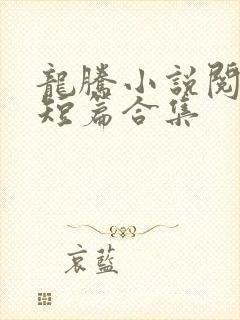 龍騰小說閱
短篇合集
哀藍